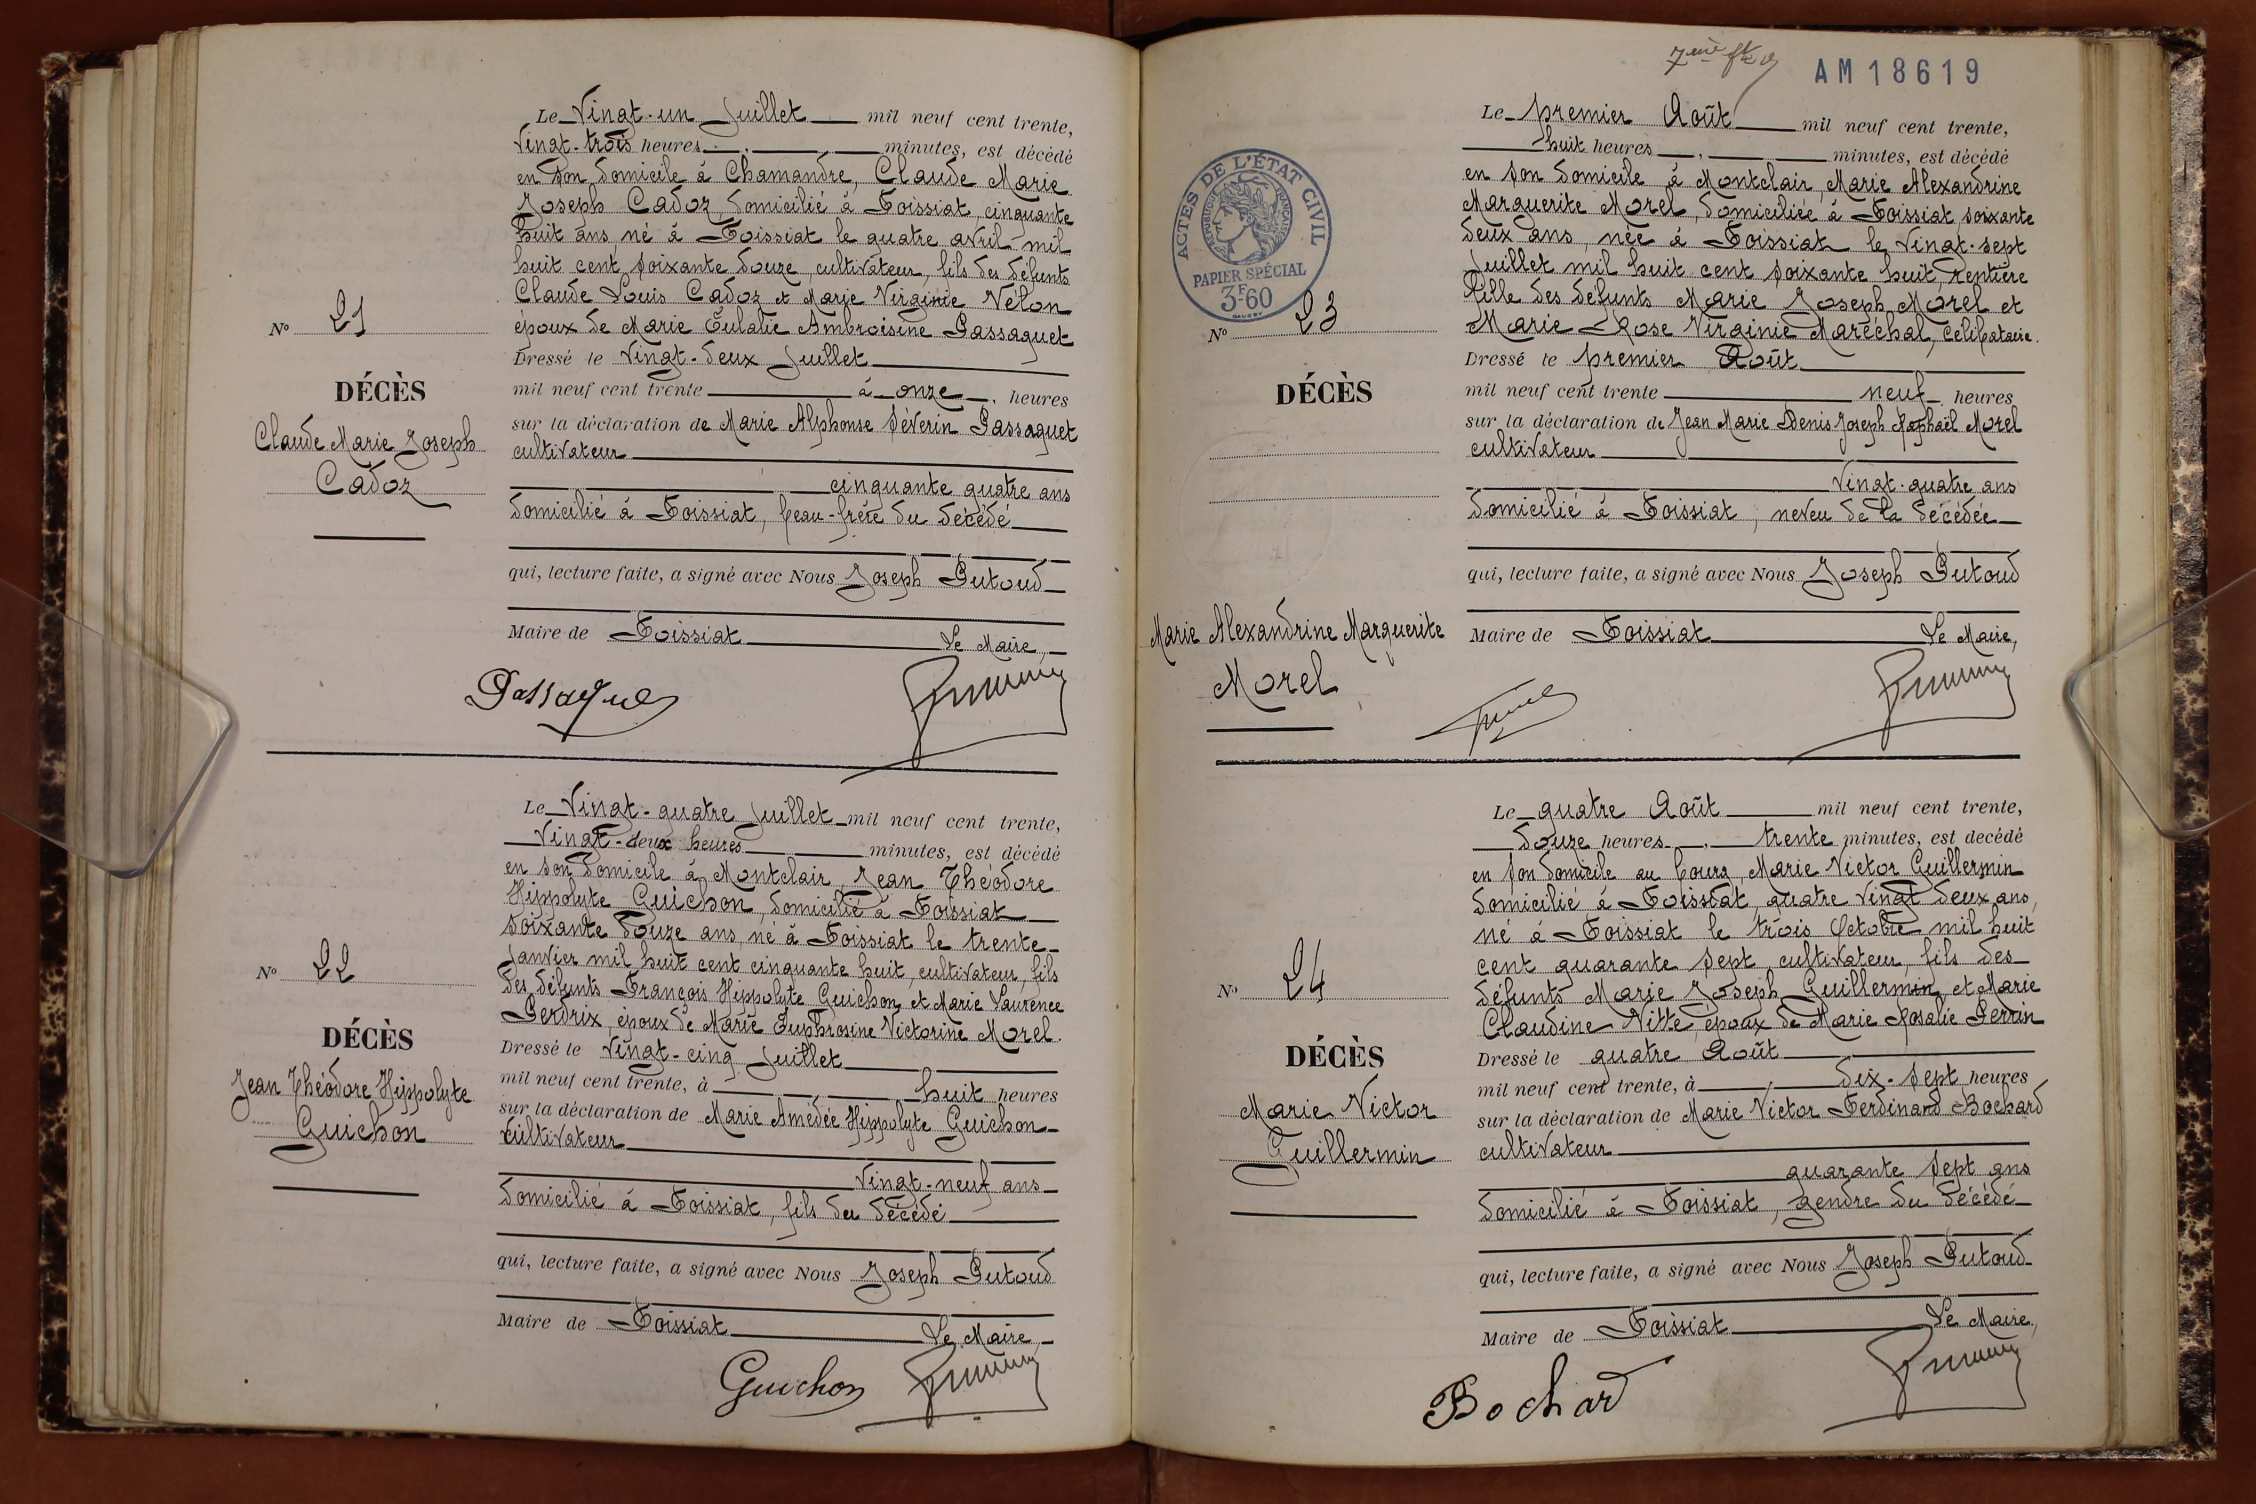 Le Vingt-un Juillet mil neuf cent trente,
Vingt-trois heures minutes, est décédé
en son domicile à Chamandre, Claude Marie
Joseph Cadoz, domicilié à Foissiat, cinquante
huit ans, né à Foissiat le quatre avril mil
huit cent soixante douze, cultivateur, fils des défunts
Claude Louis Cadoz et Marie Virginie Velon
époux de Marie Eulalie Ambroisine Passaquet
Dressé le Vingt-deux Juillet
mil neuf cent trente à onze heures
sur la déclaration de Marie Alphonse Séverin Passaquet
cultivateur
cinquante quatre ans
domicilié à Foissiat, beau-frère du décédé
qui, lecture faite, a signé avec Nous Joseph Putoud
Maire de Foissiat Le Maire,
Passaquet
No 21
DÉCÈS
Claude Marie Joseph
Cadoz
Le Vingt-quatre Juillet mil neuf cent trente,
Vingt-deux heures minutes, est décédé
en son domicile à Montclair, Jean Théodore
Hippolyte Guichon, domicilié à Foissiat
soixante douze ans, né à Foissiat le trente
janvier mil huit cent cinquante huit, cultivateur, fils
des défunts François Hippolyte Guichon et Marie Laurence
Perdrix, époux de Marie Euphrosine Victorine Morel.
Dressé le Vingt-cinq Juillet
mil neuf cent trente, à huit heures
sur la déclaration de Marie Amédée Hippolyte Guichon
cultivateur
Vingt-neuf ans
domicilié à Foissiat, fils du décédé
qui, lecture faite, a signé avec Nous Joseph Putoud
Maire de Foissiat Le Maire
Guichon
No 22
DÉCÈS
Jean Théodore Hippolyte
Guichon
7ème
AM18619
ACTES DE L'ÉTAT CIVIL
RÉPUBLIQUE FRANÇAISE
PAPIER SPÉCIAL
3F60
Le premier Août mil neuf cent trente,
huit heures minutes, est décédé
en son domicile à Montclair, Marie Alexandrine
Marguerite Morel, domiciliée à Foissiat soixante
deux ans, née à Foissiat le Vingt-sept
Juillet mil huit cent soixante huit, rentière
fille des défunts Marie Joseph Morel et
Marie Rose Virginie Maréchal, celibataire.
Dressé le premier Août
mil neuf cent trente neuf heures
sur la déclaration de Jean Marie Denis Joseph Raphaël Morel
cultivateur
Vingt-quatre ans
domicilié à Foissiat, neveu de la décédée
qui, lecture faite, a signé avec Nous Joseph Putoud
Maire de Foissiat Le Maire,
No 23
DÉCÈS
Marie Alexandrine Marguerite
Morel
Le quatre Août mil neuf cent trente,
douze heures trente minutes, est decédé
en son domicile au bourg, Marie Victor Guillermin
domicilié à Foissiat, quatre vingt deux ans,
né à Foissiat le trois Octobre mil huit
cent quarante sept, cultivateur, fils des
défunts Marie Joseph Guillermin, et Marie
Claudine Nitte, époux de Marie Rosalie Perrin
Dressé le quatre Août
mil neuf cent trente, à dix-sept heures
sur la déclaration de Marie Victor Ferdinand Bochard
cultivateur
quarante sept ans
domicilié à Foissiat, gendre du décédé
qui, lecture faite, a signé avec Nous Joseph Putoud
Maire de Foissiat Le Maire,
Bochard
No 24
DÉCÈS
Marie Victor
Guillermin